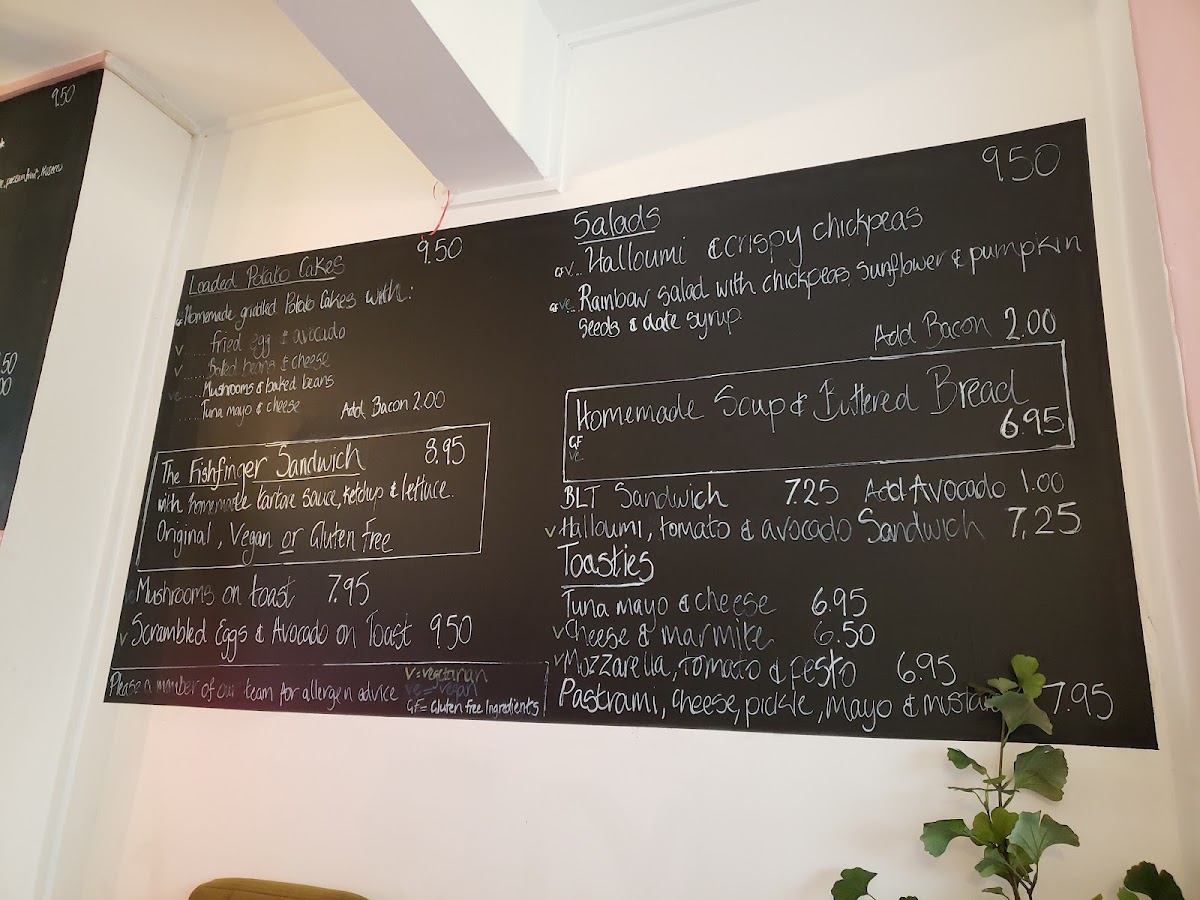 9.50
50
00
Loaded Potato Cakes 9.50
GF Homemade griddled Potato Cakes with:
V ..... fried egg & avocado
V ..... Baked beans & cheese
ve ..... Mushrooms & baked beans
..... Tuna mayo & cheese Add Bacon 2.00
The Fishfinger Sandwich 8.95
with homemade tartare sauce, ketchup & lettuce.
Original, Vegan or Gluten Free
Mushrooms on toast 7.95
V Scrambled Eggs & Avocado on Toast 9.50
Please a member of our team for allergen advice
V = vegetarian
ve = vegan
GF = Gluten free Ingredients
Salads 9.50
GFV.. Halloumi & crispy chickpeas
GF ve.. Rainbow salad with chickpeas, sunflower & pumpkin
seeds & date syrup
Add Bacon 2.00
Homemade Soup & Buttered Bread
GF
ve
6.95
BLT Sandwich 7.25 Add Avocado 1.00
V Halloumi, tomato & avocado Sandwich 7.25
Toasties
Tuna mayo & cheese 6.95
V Cheese & marmite 6.50
V Mozzarella, Tomato & pesto 6.95
Pastrami, cheese, pickle, mayo & mustard 7.95